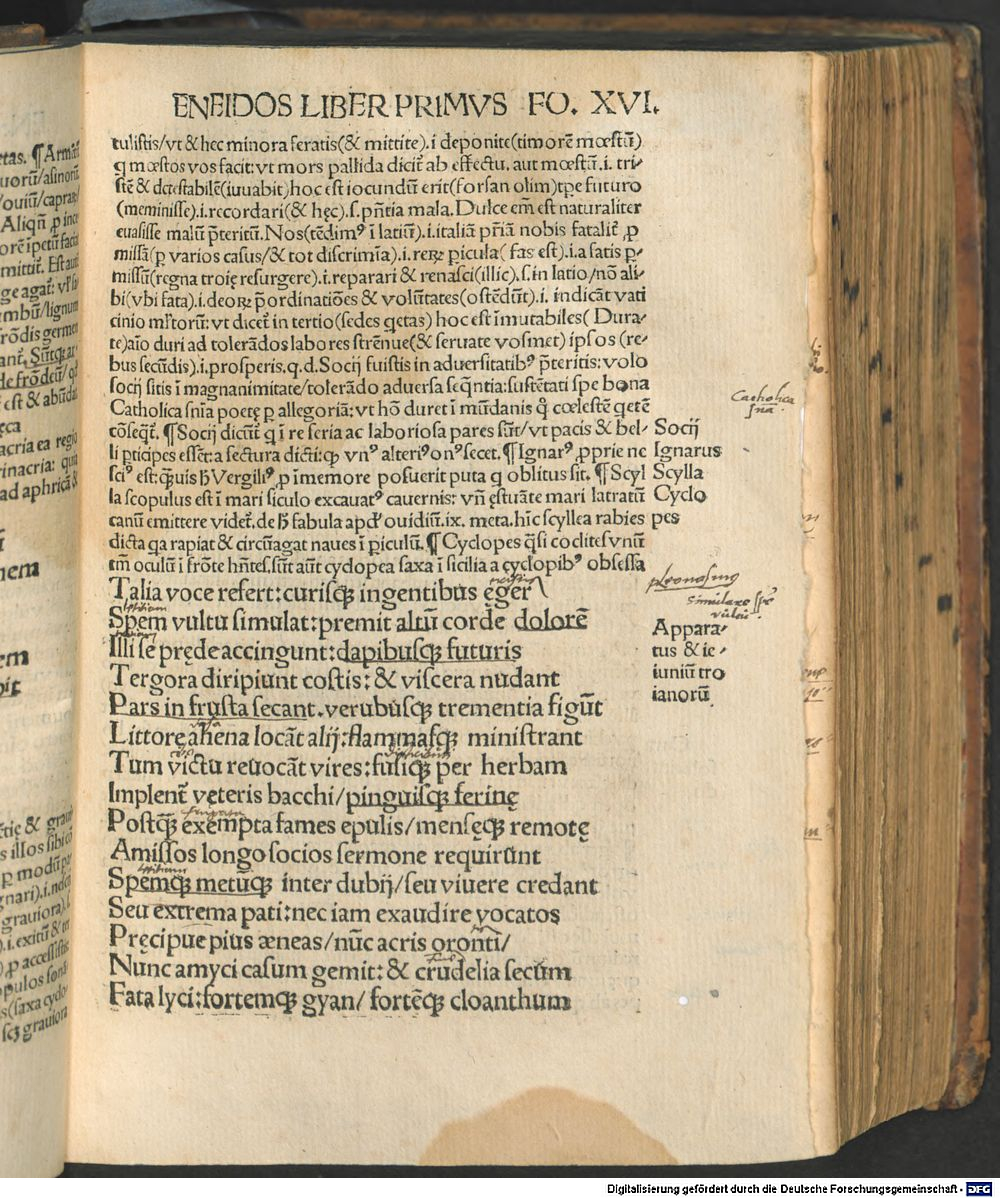 ENEIDOS LIBER PRIMVS FO. XVI.
tulistis/vt & hec minora feratis(& mittite).i deponite(timorē mœstū)
q mœstos vos facit: vt mors pallida dicit̄ ab effectu. aut mœstū.i. tri-
stē & detestabilē(iuuabit)hoc est iocundū erit(forsan olim)tp̄e futuro
(meminisse).i.recordari(& hęc).s.pn̄tia mala. Dulce em̄ est naturaliter
euasisse malū p̄teritū. Nos(tēdimꝰ ī latiū).i.italiā pr̄iā nobis fatalit̄ ꝓ
missā(ꝑ varios casus/& tot discrimīa).i.reꝝ ꝑicula( fas est).i.a fatis ꝑ-
missū(regna troię resurgere).i.reparari & renasci(illic).s.in latio/nō ali-
bi(vbi fata).i.deoꝝ p̄ordinatiōes & volūtates(ostēdūt).i. indicāt vati
cinio mr̄torū: vt dicet̄ in tertio(sedes qetas) hoc est īmutabiles( Dura-
te)aīo duri ad tolerādos labores strēnue(& seruate vosmet) ipsos (re-
bus secūdis).i.prosperis.q.d. Socij fuistis in aduersitatibꝰ p̄teritis: volo
socij sitis ī magnanimitate/tolerādo aduersa seq̄ntia: sustētati spe bona
Catholica sn̄ia poetę ꝑ allegoriā: vt hō duret ī mūdanis q̊ cœlestē qetē
cōseqt̄. ¶ Socij dicūt̄ q ī re seria ac laboriosa pares sūt/vt pacis & bel-
li pticipes essēt: a sectura dicti: ꝙ vnꝰ alteriꝰ onꝰ secet. ¶ Ignarꝰ ꝓprie nc
sciꝰ est: q̄uis h̄ Vergiliꝰ ꝓ īmemore posuerit puta q oblitus sit. ¶ Scyl
la scopulus est ī mari siculo excauatꝰ cauernis: vn̄ ęstuāte mari latratū
canū emittere videt̄. de h̄ fabula apd̕ ouidiū.ix. meta. hīc scyllea rabies
dicta qa rapiat & circūagat naues ī ꝑiculū. ¶ Cyclopes q̄si coclites vnū
tm̄ oculū ī frōte hn̄tes. sūt aūt cyclopea saxa ī sicilia a cyclopibꝰ obsessa
Socij
Ignarus
Scylla
Cyclo
pes
Catholica
sn̄a.
Talia voce refert: curisqꝫ ingentibus ęger
Spem vultu simulat: premit altū corde dolorē
Illi se pręde accingunt: dapibusqꝫ futuris
Tergora diripiunt costis: & viscera nudant
Pars in frusta secant. verubusqꝫ trementia figūt
Littore ahena locāt alij: flammasqꝫ ministrant
Tum victu reuocāt vires: fusiqꝫ per herbam
Implent̄ veteris bacchi/pinguisqꝫ ferinę
Postq̄ꝫ exempta fames epulis/mensęqꝫ remotę
Amissos longo socios sermone requirūnt
Spemqꝫ metūqꝫ inter dubij/seu viuere credant
Seu extrema pati: nec iam exaudire vocatos
Pręcipue pius æneas/nūc acris oronti/
Nunc amyci casum gemit: & crudelia secum
Fata lyci: fortemqꝫ gyan/ fortēqꝫ cloanthum
pleonasmus
simulare spē
vultu.
Appara-
tus & ie-
iuniū tro
ianorū
Digitalisierung gefördert durch die Deutsche Forschungsgemeinschaft - DFG